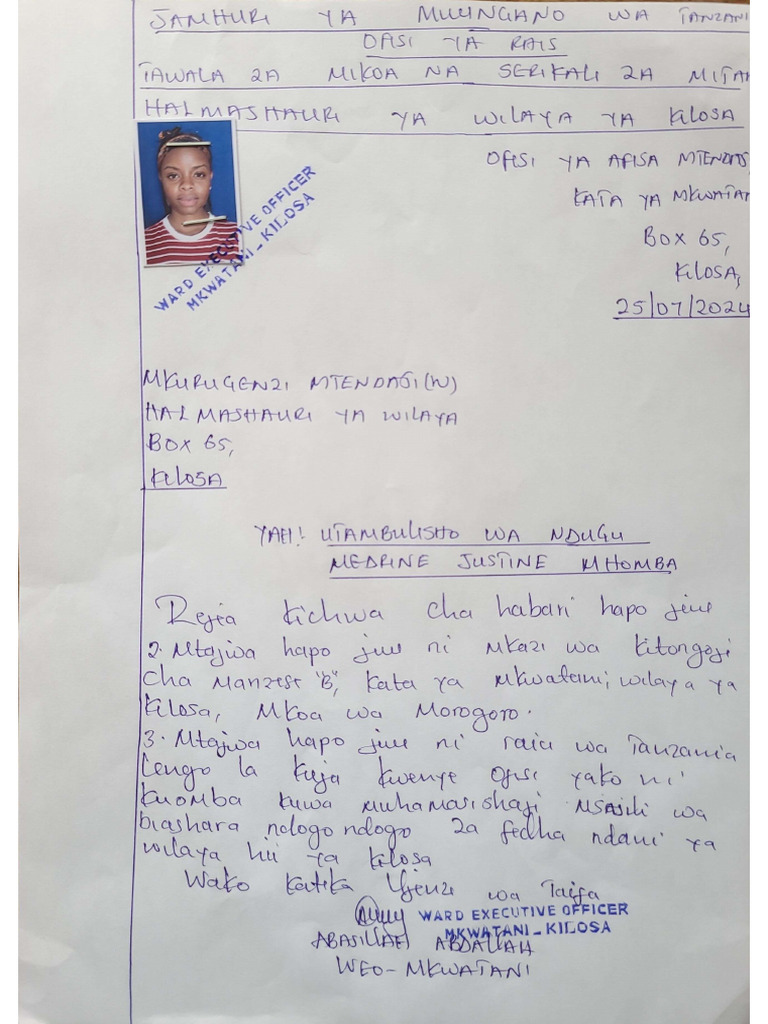 JAMHURI YA MUUNGANO WA TANZANI
OFISI YA RAIS
TAWALA ZA MIKOA NA SERIKALI ZA MITA
HALMASHAURI YA WILAYA YA KILOSA
OFISI YA AFISA MTENDAJI
KATA YA MKWATAN
BOX 65,
KILOSA,
25/07/2024
WARD EXECUTIVE OFFICER
MKWATANI - KILOSA
MKURUGENZI MTENDAJI (W)
HALMASHAURI YA WILAYA
BOX 65,
KILOSA
YAH! UTAMBULISHO WA NDUGU
MEDRINE JUSTINE MHOMBA
Rejea kichwa cha habari hapo juu
2. Mtajwa hapo juu ni mkazi wa kitongoji
cha Manzese "B", kata ya mkwatani, wilaya ya
kilosa, Mkoa wa Morogoro.
3. Mtajwa hapo juu ni raia wa Tanzania
lengo la kuja kwenye ofisi yako ni
kuomba kuwa muhamasishaji msajili wa
biashara ndogo ndogo za fedha ndani ya
wilaya hii ya kilosa
Wako katika Ujenzi wa Taifa
WARD EXECUTIVE OFFICER
MKWATANI - KILOSA
ABDALLAH
WEO - MKWATANI